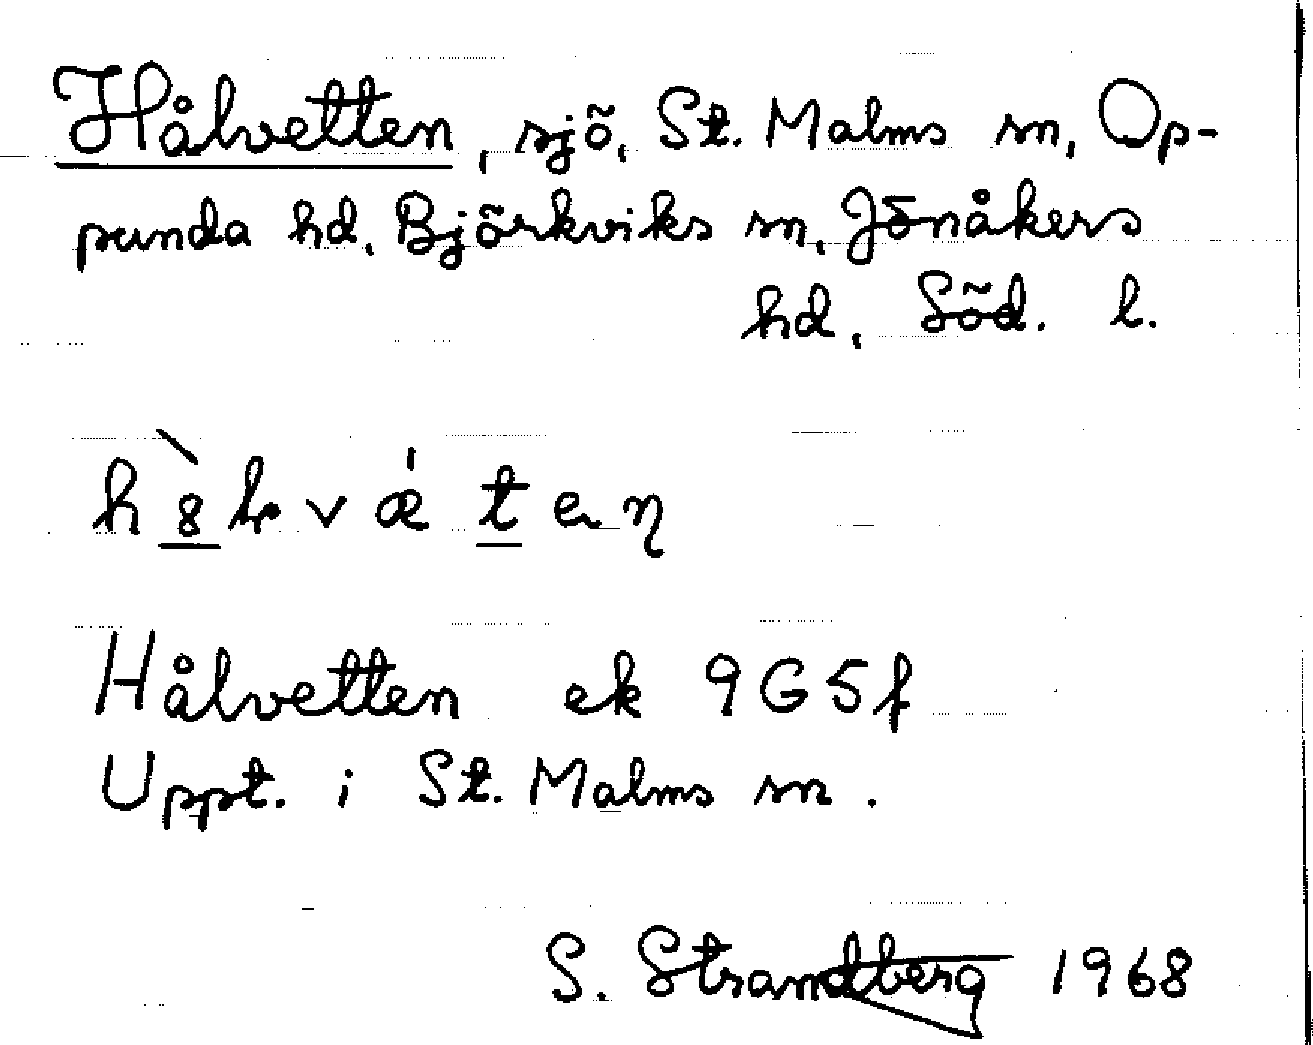 Hålvetten, sjö, St. Malms sn, Op-
punda hd, Björkviks sn, Jönåkers
hd, Söd. l.
Hålvetten ek 9G5f
Uppt. i St. Malms sn.
S. Strandberg 1968